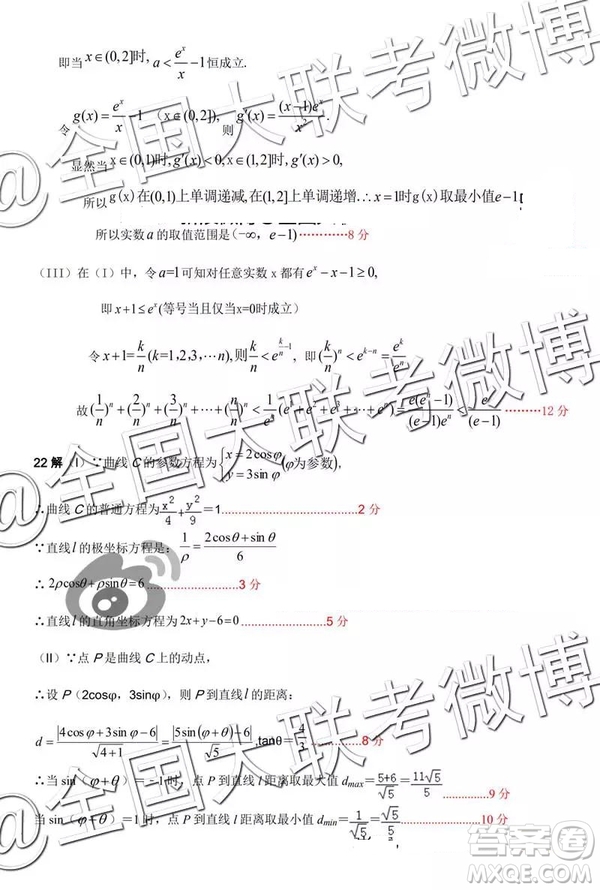 即当 x∈(0,2]时, a < e^x/x −1恒成立.
令 g(x) = e^x/x −1 （x∈(0,2]）, 则 g'(x) = (x−1)e^x/x².
显然当 x∈(0,1)时, g'(x)<0; x∈(1,2]时, g'(x)>0,
所以 g(x)在(0,1)上单调递减,在(1,2]上单调递增.∴x=1时g(x)取最小值e−1
所以实数 a 的取值范围是(−∞, e−1) …………8 分
（III）在（I）中，令 a=1 可知对任意实数 x 都有 e^x − x −1 ≥ 0,
即 x+1 ≤ e^x (等号当且仅当x=0时成立)
令 x+1 = k/n (k=1,2,3,⋯n), 则 k/n < e^(k/n −1), 即 (k/n)^n < e^(k−n) = e^k/e^n
故 (1/n)^n + (2/n)^n + (3/n)^n + ⋯ + (n/n)^n < 1/e^n (e^1+e^2+e^3+⋯+e^n) = e(e^n−1)/((e−1)e^n) < e/(e−1) ………12 分
22 解（I）∵曲线 C 的参数方程为 {x=2cosφ, y=3sinφ (φ为参数),
∴曲线 C 的普通方程为 x²/4 + y²/9 = 1 …………2 分
∵直线 l 的极坐标方程是: 1/ρ = (2cosθ+sinθ)/6
∴ 2ρcosθ+ρsinθ=6 …………3 分
∴直线 l 的直角坐标方程为 2x+y−6=0 …………5 分
（II）∵点 P 是曲线 C 上的动点，
∴设 P（2cosφ，3sinφ），则 P 到直线 l 的距离：
d = |4cosφ+3sinφ−6|/√(4+1) = |5sin(φ+θ)−6|/√5 ,tanθ = 4/3 …………8 分
∴当 sin（φ+θ）=﹣1 时，点 P 到直线 l 距离取最大值 dmax = (5+6)/√5 = 11√5/5 …………9 分
当 sin（φ+θ）=1 时，点 P 到直线 l 距离取最小值 dmin = 1/√5 = √5/5 …………10 分
@全国大联考微博
@全国大联考微博
@全国大联考微博
答案圈
MXQE.COM